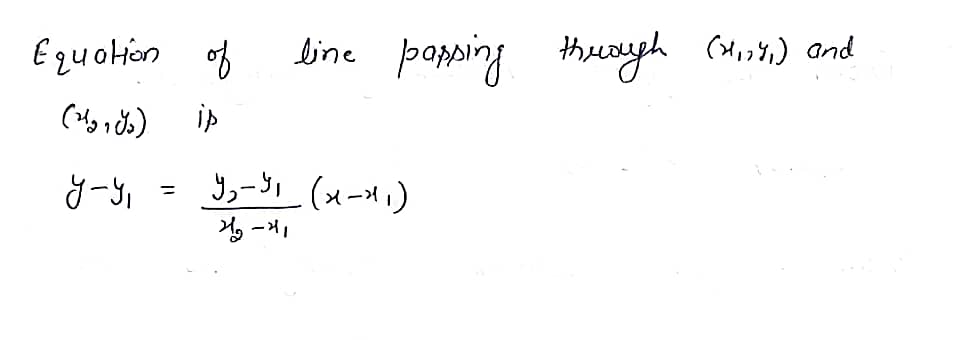 Equation of line passing through (x₁, y₁) and
(x₂, y₂) is
y - y₁ = \frac{y₂ - y₁}{x₂ - x₁} (x - x₁)